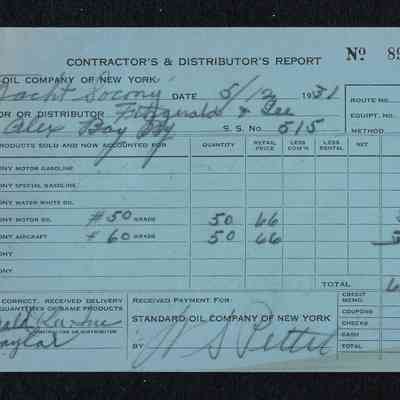 CONTRACTOR'S & DISTRIBUTOR'S REPORT Nº 89
OIL COMPANY OF NEW YORK
Yacht Socony DATE 5/12 1931
OR OR DISTRIBUTOR Fitzgerald & Lee
Alex Bay NY S. S. No. 515
ROUTE NO.
EQUIPT. NO.
METHOD
PRODUCTS SOLD AND NOW ACCOUNTED FOR QUANTITY RETAIL PRICE LESS COM'N LESS RENTAL NET
ONY MOTOR GASOLINE
ONY SPECIAL GASOLINE
ONY WATER WHITE OIL
ONY MOTOR OIL #50 GRADE 50 66
ONY AIRCRAFT 60 GRADE 50 66
ONY
ONY
TOTAL 6
CORRECT. RECEIVED DELIVERY
QUANTITIES OF SAME PRODUCTS
CONTRACTOR OR DISTRIBUTOR
aylor
RECEIVED PAYMENT FOR
STANDARD OIL COMPANY OF NEW YORK
BY
CREDIT MEMO.
COUPONS
CHECKS
CASH
TOTAL